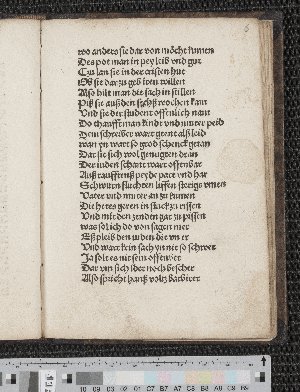 wo anders sie dar von möcht kumen
Des pot man in pey leib vnd gut
Czu lan sie in der cristen hut
Ob sie dar zu geb iren willen
Also hilt man die sach in stillen
Piß sie auß den sechß wochen kam
Vnd sie der student offenlich nam
Do thaufft man kindt vnd muter peid
Dem schreiber wart gremt als leid
wan yn wart so groß schenck getan
Dar sie sich wol genugten dran
Der iuden schant wart offenbar
Auß rauffrenß peyde part vnd har
Schwurn fluchten luffen sterigs vmen
Vater vnd muter an zu kumen
Die her es geren in stuck zu rissen
Vnd mit den zenden gar zu pissen
was sol ich do von sagen mer
Eß pleib den iuden die vn er
Vnd wart kein sach yn nie so schwer
Ja solt es nit sein offenwer
Dar vin sich ider noch bescher
Also spricht hanß voltz barbirer